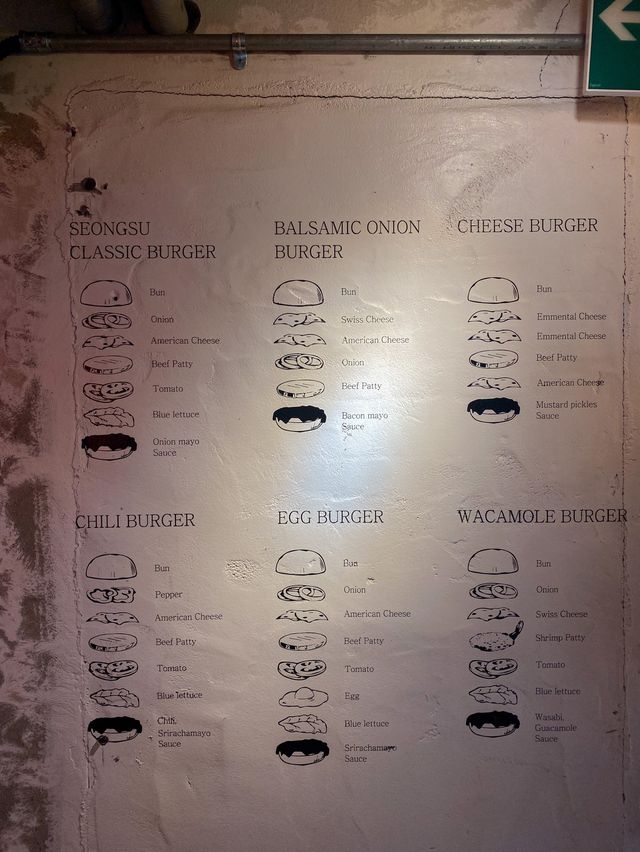 SEONGSU
CLASSIC BURGER
Bun
Onion
American Cheese
Beef Patty
Tomato
Blue lettuce
Onion mayo
Sauce
BALSAMIC ONION
BURGER
Bun
Swiss Cheese
American Cheese
Onion
Beef Patty
Bacon mayo
Sauce
CHEESE BURGER
Bun
Emmental Cheese
Emmental Cheese
Beef Patty
American Cheese
Mustard pickles
Sauce
CHILI BURGER
Bun
Pepper
American Cheese
Beef Patty
Tomato
Blue lettuce
Chili,
Srirachamayo
Sauce
EGG BURGER
Bun
Onion
American Cheese
Beef Patty
Tomato
Egg
Blue lettuce
Srirachamayo
Sauce
WACAMOLE BURGER
Bun
Onion
Swiss Cheese
Shrimp Patty
Tomato
Blue lettuce
Wasabi,
Guacamole
Sauce